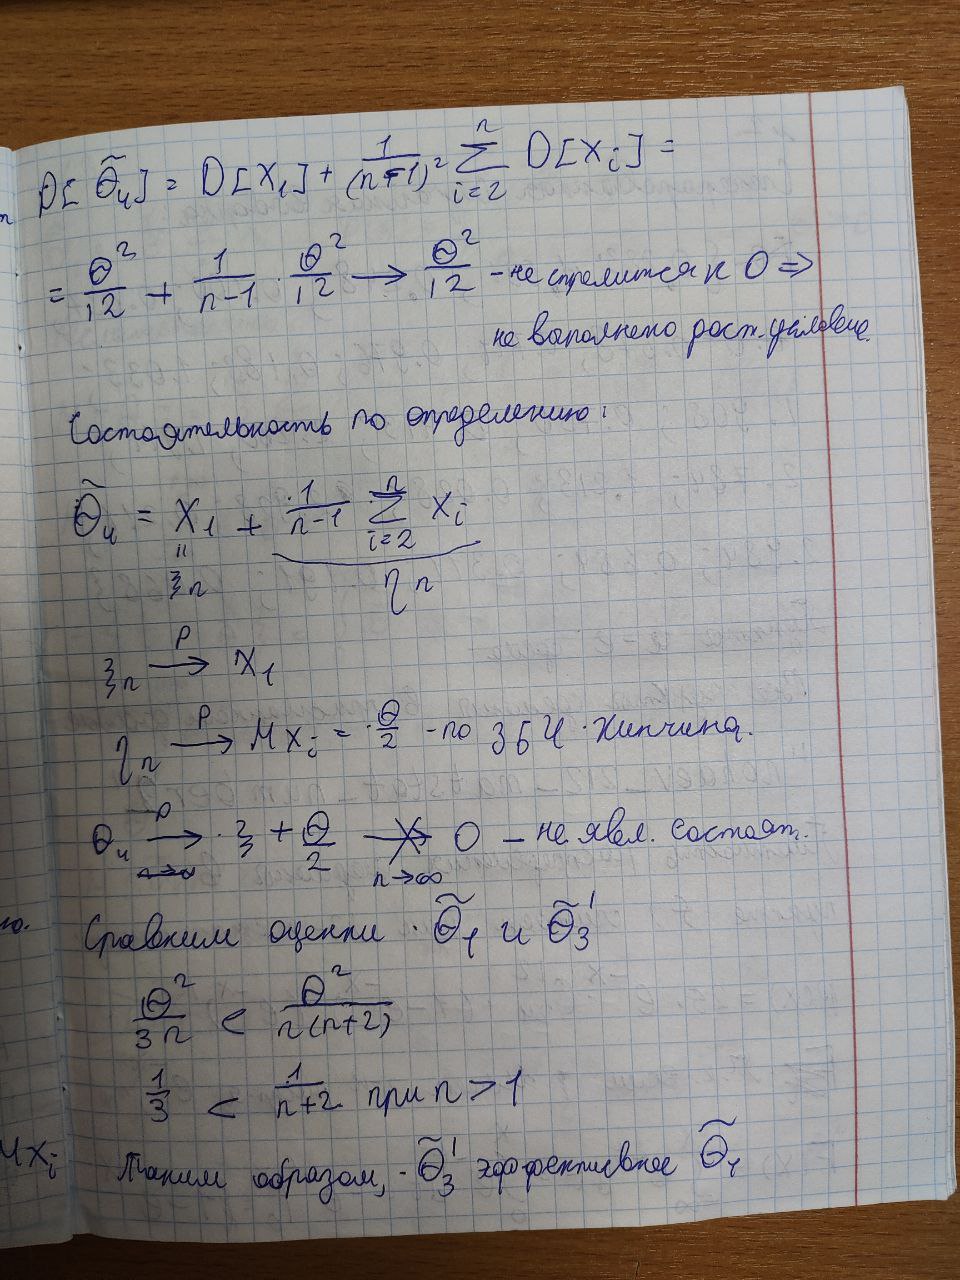 D[θ̃₄] = D[X₁] + 1/(n-1)² ∑ᵢ₌₂ⁿ D[Xᵢ] =
= θ²/12 + 1/(n-1) · θ²/12 → θ²/12 - не стремится к 0 ⇒
не выполнено дост. условие.
Состоятельность по определению:
θ̃₄ = X₁ + 1/(n-1) ∑ᵢ₌₂ⁿ xᵢ
"
ξₙ ηₙ
ξₙ →ᴾ X₁
ηₙ →ᴾ MXᵢ = θ/2 - по ЗБЧ Хинчина.
θ₄ →ᴾ ξ + θ/2 ↛ 0 - не явл. состоят.
n→∞
Сравним оценки θ̃₁ и θ̃₃'
θ²/3n < θ²/n(n+2)
1/3 < 1/n+2 при n > 1
MXᵢ Таким образом, θ̃₃' эффективнее θ̃₁